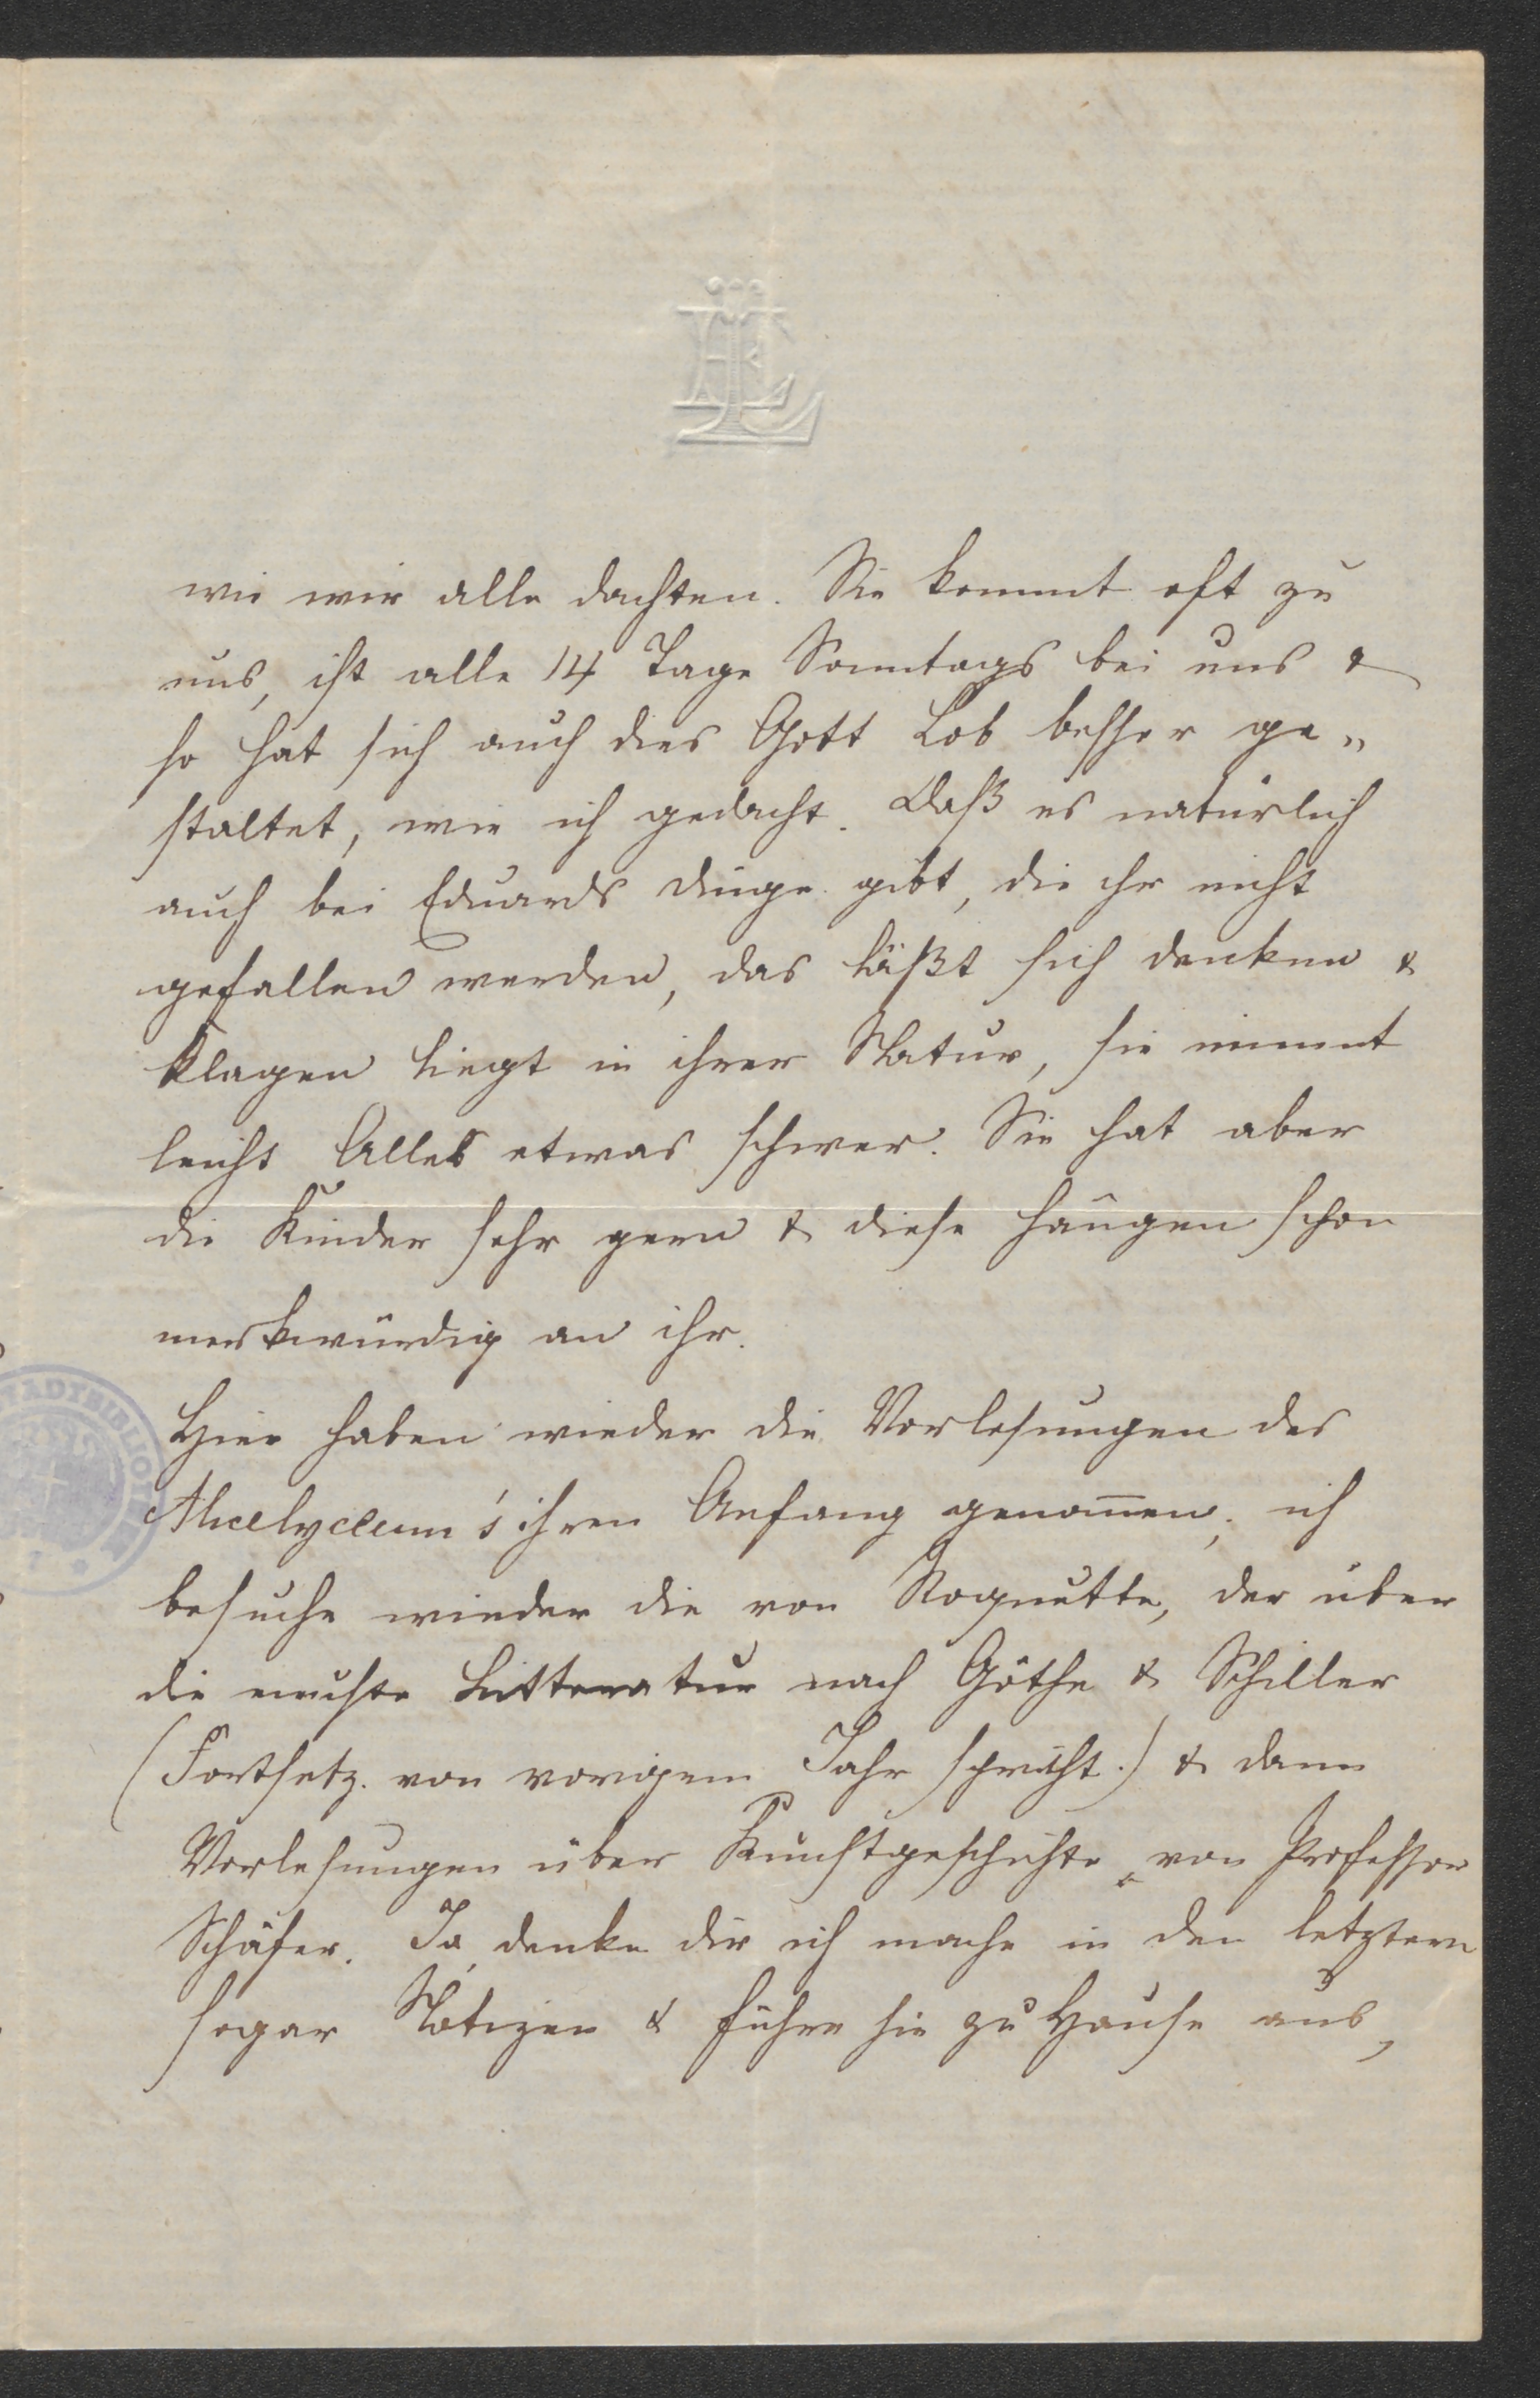 wie wir alle dachten. Sie kommt oft zu
uns, ist alle 14 Tage Sonntags bei uns &
so hat sich auch dies Gott Lob besser ge„
staltet, wie ich gedacht. Daß es natürlich
auch bei Eduards Dinge gibt, die ihr nicht
gefallen werden, das läßt sich denken &
klagen liegt in ihrer Natur, sie nimmt
leicht Alles etwas schwer. Sie hat aber
die Kinder sehr gern & diese hängen schon
merkwürdig an ihr.
Hier haben wieder die Vorlesungen des
Alicelyceum's ihren Anfang genom̅en, ich
besuche wieder die von Roquette, der über
die neuste Litteratur nach Göthe & Schiller
(Fortsetz. von vorigem Jahr spricht.) & dann
Vorlesungen über Kunstgeschichte von Professor
Schäfer. Ja, denke dir ich mache in den letztern
sogar Notizen & führe sie zu Hause aus,